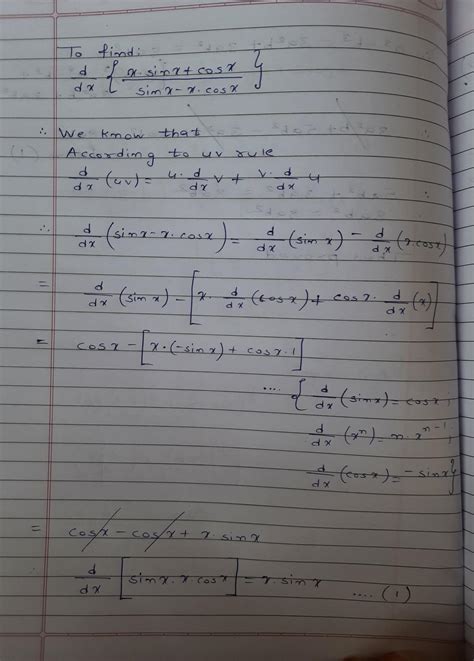 To find:
d/dx { x·sinx + cosx / sinx - x·cosx }
∴ We know that
According to uv rule
d/dx (uv) = u·d/dx v + v·d/dx u
∴ d/dx (sinx - x·cosx) = d/dx (sin x) - d/dx (x·cosx)
= d/dx (sin x) - [x·d/dx (cosx) + cosx·d/dx (x)]
= cosx - [x·(-sinx) + cosx·1]
.... { d/dx (sinx) = cosx,
d/dx (xⁿ) = n·xⁿ⁻¹,
d/dx (cosx) = -sinx }
= cosx - cosx + x·sinx
d/dx [sinx·x cosx] = x·sinx .... (1)